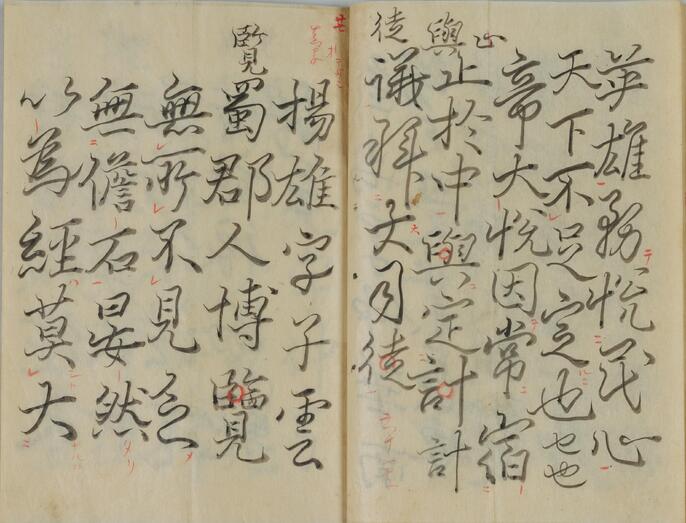 英雄務悦民心
天下不足定也也
帝大悦因常宿
止於中與定計計
議拜大司徒
揚雄字子雲
蜀郡人博覽
無所不見乏
無儋石晏然
以為經莫大
止
與
徒
覽